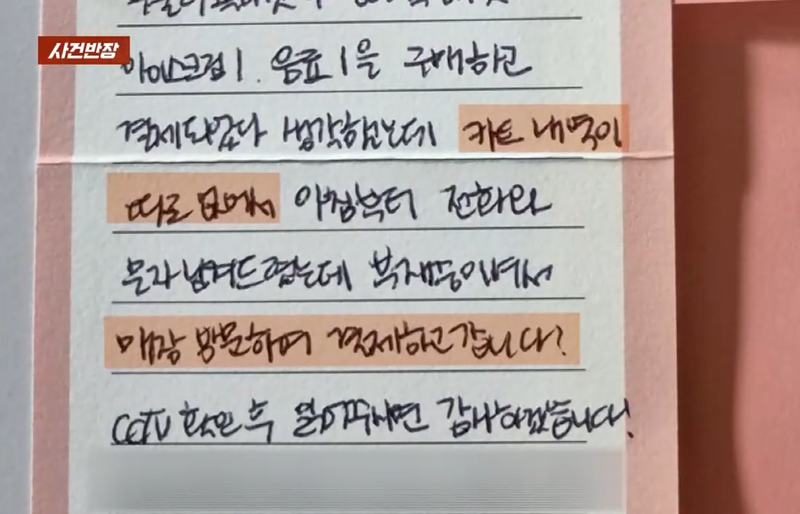 사건반장
아이스크림 1. 음료 1을 구매하고
결제되었다 생각했는데 카트 내역이
따로 없어서 아침부터 전화와
문자 남겨드렸는데 부재중이셔서
매장 방문하여 결제하고 갑니다!
CCTV 확인 후 떼어주시면 감사하겠습니다!